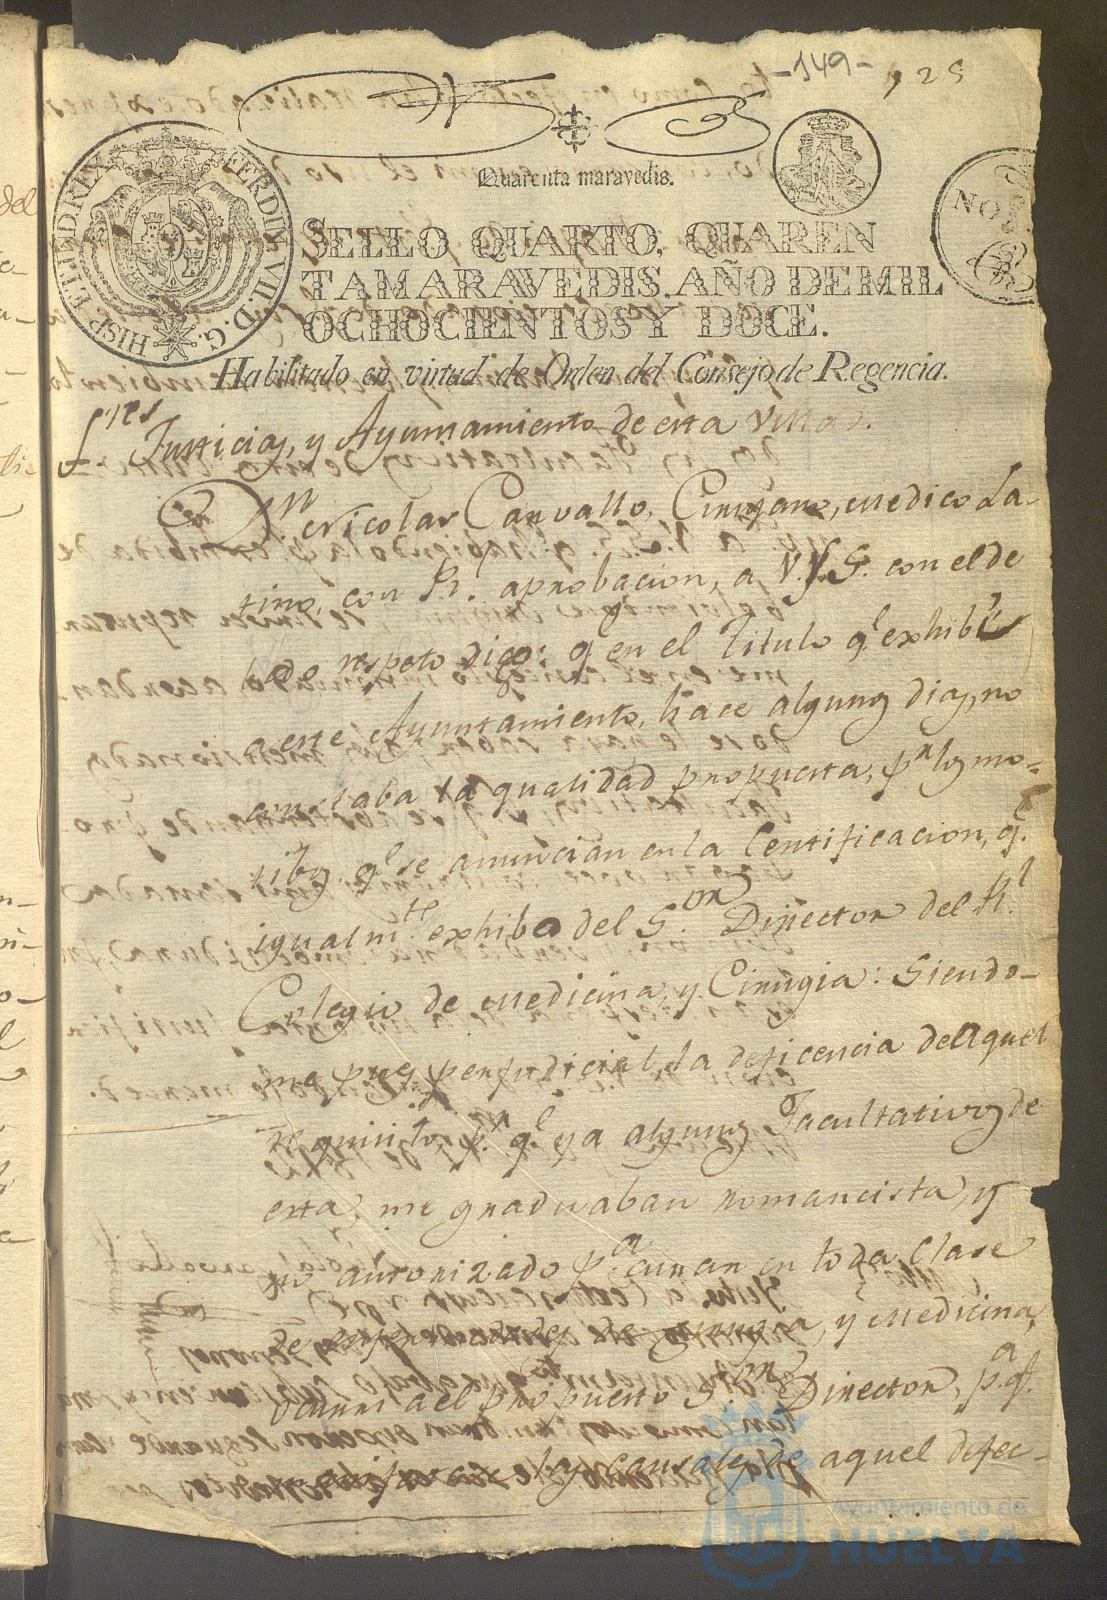 -149- 125
Quarenta maravedis.
HISP. ET IND. REX FERDIN. VII. D. G.
NO
SELLO QUARTO, QUAREN
TA MARAVEDIS, AÑO DE MIL
OCHOCIENTOS Y DOCE.
Habilitado en virtud de Orden del Consejo de Regencia.
Sres
Justicia, y Ayuntamiento de esta Villa.
Dn Nicolas Carvallo, Cirujano, Medico La-
tino, con Rl. aprobacion, a V.S.S. con el de
bido respeto digo: q.e en el Titulo q.e exhibí
a este Ayuntamiento, hace algunos dias, no
constaba la qualidad propuesta, pr los mo-
tibos q.e se anuncian en la Certificacion, q.e
igualm.te exhibo del S.or Director del Rl
Colegio de Medicina, y Cirugia: Siendo-
me pues perjudicial, la deficencia de aquel
requisito, pr q.e ya algunos Facultativos de
esta, me graduaban romancista, y
no autorizado p.a curar en toda clase
de enfermedades de Cirugia, y Medicina,
ocurri al propuesto S.or Director, p.a q.e
las causales de aquel defec-
Ayuntamiento de
HUELVA